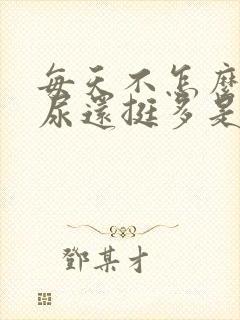 每天不怎麼
尿還挺多是
鄧某才